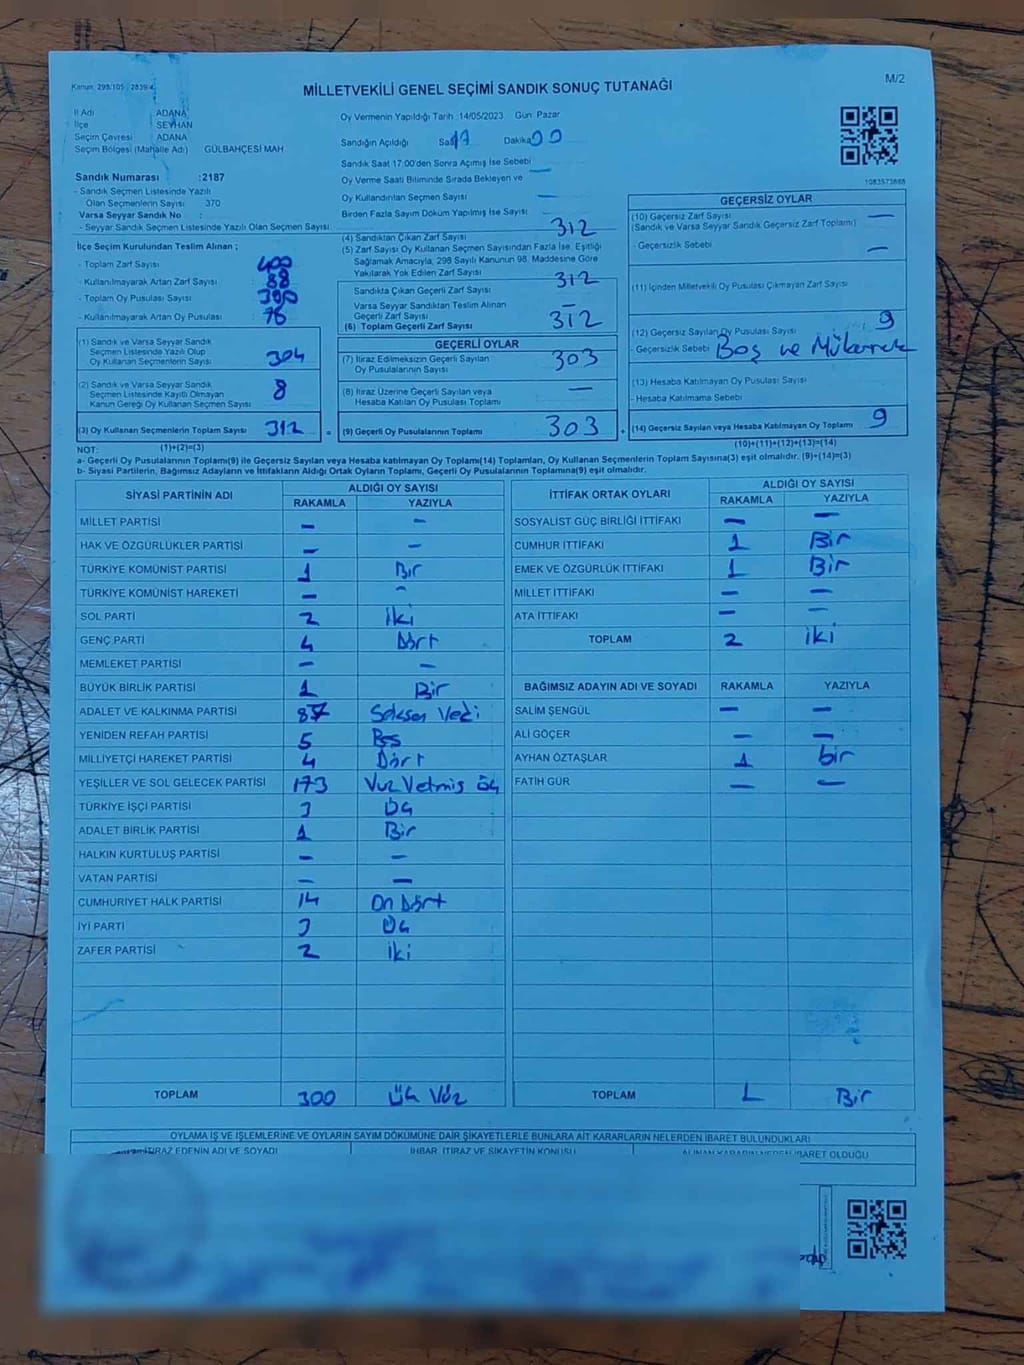 Kanun: 298/105 - 2839/4
M/2
MİLLETVEKİLİ GENEL SEÇİMİ SANDIK SONUÇ TUTANAĞI
İl Adı ADANA
İlçe SEYHAN
Seçim Çevresi ADANA
Seçim Bölgesi (Mahalle Adı) GÜLBAHÇESİ MAH
Sandık Numarası :2187
- Sandık Seçmen Listesinde Yazılı
Olan Seçmenlerin Sayısı 370
Varsa Seyyar Sandık No :
- Seyyar Sandık Seçmen Listesinde Yazılı Olan Seçmen Sayısı
Oy Vermenin Yapıldığı Tarih 14/05/2023 Gün Pazar
Sandığın Açıldığı Saat 17 Dakika 00
Sandık Saat 17.00'den Sonra Açımış İse Sebebi
Oy Verme Saati Bitiminde Sırada Bekleyen ve —
Oy Kullandırılan Seçmen Sayısı —
Birden Fazla Sayım Döküm Yapılmış İse Sayısı —
1083573888
İlçe Seçim Kurulundan Teslim Alınan ;
- Toplam Zarf Sayısı : 400
- Kullanılmayarak Artan Zarf Sayısı : 88
- Toplam Oy Pusulası Sayısı : 390
- Kullanılmayarak Artan Oy Pusulası : 76
(1) Sandık ve Varsa Seyyar Sandık
Seçmen Listesinde Yazılı Olup
Oy Kullanan Seçmenlerin Sayısı 304
(2) Sandık ve Varsa Seyyar Sandık
Seçmen Listesinde Kayıtlı Olmayan
Kanun Gereği Oy Kullanan Seçmen Sayısı 8
(3) Oy Kullanan Seçmenlerin Toplam Sayısı 312
(4) Sandıktan Çıkan Zarf Sayısı 312
(5) Zarf Sayısı Oy Kullanan Seçmen Sayısından Fazla İse, Eşitliği
Sağlamak Amacıyla, 298 Sayılı Kanunun 98. Maddesine Göre
Yakılarak Yok Edilen Zarf Sayısı
Sandıkta Çıkan Geçerli Zarf Sayısı 312
Varsa Seyyar Sandıktan Teslim Alınan
Geçerli Zarf Sayısı —
(6) Toplam Geçerli Zarf Sayısı 312
GEÇERLİ OYLAR
(7) İtiraz Edilmeksizin Geçerli Sayılan
Oy Pusulalarının Sayısı 303
(8) İtiraz Üzerine Geçerli Sayılan veya
Hesaba Katılan Oy Pusulası Toplamı —
(9) Geçerli Oy Pusulalarının Toplamı 303
GEÇERSİZ OYLAR
(10) Geçersiz Zarf Sayısı —
(Sandık ve Varsa Seyyar Sandık Geçersiz Zarf Toplamı)
- Geçersizlik Sebebi —
(11) İçinden Milletvekili Oy Pusulası Çıkmayan Zarf Sayısı
(12) Geçersiz Sayılan Oy Pusulası Sayısı 9
- Geçersizlik Sebebi Boş ve Mükerrer
(13) Hesaba Katılmayan Oy Pusulası Sayısı
- Hesaba Katılmama Sebebi
(14) Geçersiz Sayılan veya Hesaba Katılmayan Oy Toplamı 9
NOT: (1)+(2)=(3) (10)+(11)+(12)+(13)=(14)
a- Geçerli Oy Pusulasının Toplamı(9) ile Geçersiz Sayılan veya Hesaba Katılmayan Oy Toplamı(14) Toplamları, Oy Kullanan Seçmenlerin Toplam Sayısına(3) eşit olmalıdır. (9)+(14)=(3)
b- Siyasi Partilerin, Bağımsız Adayların ve İttifakların Aldığı Ortak Oyların Toplamı, Geçerli Oy Pusulalarının Toplamına(9) eşit olmalıdır.
SİYASİ PARTİNİN ADI ALDIĞI OY SAYISI
RAKAMLA YAZIYLA
MİLLET PARTİSİ — —
HAK VE ÖZGÜRLÜKLER PARTİSİ — —
TÜRKİYE KOMÜNİST PARTİSİ 1 Bir
TÜRKİYE KOMÜNİST HAREKETİ — —
SOL PARTİ 2 İki
GENÇ PARTİ 4 Dört
MEMLEKET PARTİSİ — —
BÜYÜK BİRLİK PARTİSİ 1 Bir
ADALET VE KALKINMA PARTİSİ 87 Seksen Yedi
YENİDEN REFAH PARTİSİ 5 Beş
MİLLİYETÇİ HAREKET PARTİSİ 4 Dört
YEŞİLLER VE SOL GELECEK PARTİSİ 173 Yüz Yetmiş Üç
TÜRKİYE İŞÇİ PARTİSİ 3 Üç
ADALET BİRLİK PARTİSİ 1 Bir
HALKIN KURTULUŞ PARTİSİ — —
VATAN PARTİSİ — —
CUMHURİYET HALK PARTİSİ 14 On Dört
İYİ PARTİ 3 Üç
ZAFER PARTİSİ 2 İki
TOPLAM 300 Üç Yüz
İTTİFAK ORTAK OYLARI ALDIĞI OY SAYISI
RAKAMLA YAZIYLA
SOSYALİST GÜÇ BİRLİĞİ İTTİFAKI — —
CUMHUR İTTİFAKI 1 Bir
EMEK VE ÖZGÜRLÜK İTTİFAKI 1 Bir
MİLLET İTTİFAKI — —
ATA İTTİFAKI — —
TOPLAM 2 iki
BAĞIMSIZ ADAYIN ADI VE SOYADI RAKAMLA YAZIYLA
SALİM ŞENGÜL — —
ALİ GÖÇER — —
AYHAN ÖZTAŞLAR 1 bir
FATİH GÜR — —
TOPLAM 1 Bir
OYLAMA İŞ VE İŞLEMLERİNE VE OYLARIN SAYIM DÖKÜMÜNE DAİR ŞİKAYETLERLE BUNLARA AİT KARARLARIN NELERDEN İBARET BULUNDUKLARI
İTİRAZ EDENİN ADI VE SOYADI İHBAR, İTİRAZ VE ŞİKAYETİN KONUSU ALINAN KARARIN NEDEN İBARET OLDUĞU